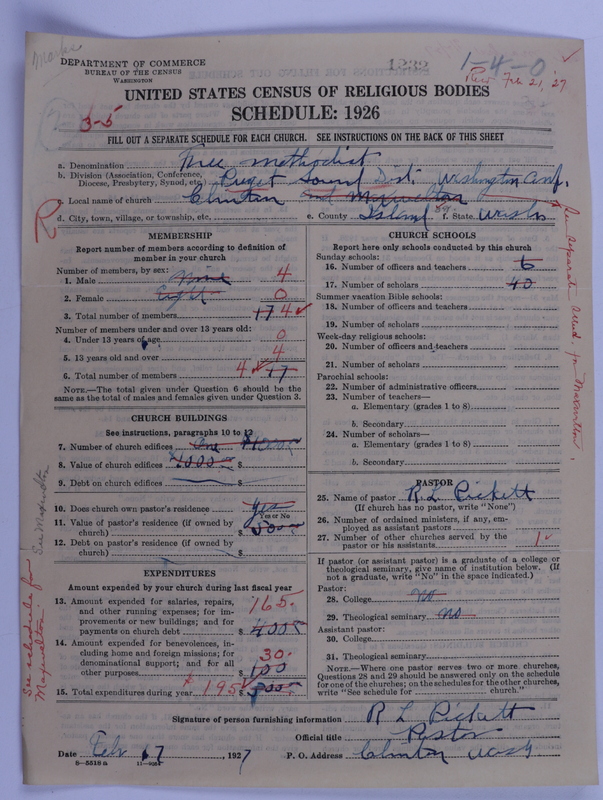 Marks
DEPARTMENT OF COMMERCE
BUREAU OF THE CENSUS
WASHINGTON
1232
1-4-0
Rec. Feb 21, '27
3-5
UNITED STATES CENSUS OF RELIGIOUS BODIES
SCHEDULE: 1926
FILL OUT A SEPARATE SCHEDULE FOR EACH CHURCH. SEE INSTRUCTIONS ON THE BACK OF THIS SHEET
a. Denomination Free Methodist
b. Division (Association, Conference, Diocese, Presbytery, Synod, etc) Puget Sound Dist. Washington Conf.
c. Local name of church Clinton and Maxwelton
d. City, town, village, or township, etc. e. County Island f. State Wash
MEMBERSHIP
Report number of members according to definition of member in your church
Number of members, by sex:
1. Male Nine 4
2. Female Eight 0
3. Total number of members 17 4
Number of members under and over 13 years old:
4. Under 13 years of age 0
5. 13 years old and over 4
6. Total number of members 4 17
NOTE.—The total given under Question 6 should be the same as the total of males and females given under Question 3.
CHURCH BUILDINGS
See instructions, paragraphs 10 to 12
7. Number of church edifices One
8. Value of church edifices $
9. Debt on church edifices $
10. Does church own pastor's residence Yes
Yes or No
11. Value of pastor's residence (if owned by church) $
12. Debt on pastor's residence (if owned by church) $
EXPENDITURES
Amount expended by your church during last fiscal year
13. Amount expended for salaries, repairs, and other running expenses; for improvements or new buildings; and for payments on church debt 165. $
14. Amount expended for benevolences, including home and foreign missions; for denominational support; and for all other purposes 30. 100
15. Total expenditures during year $195 $
CHURCH SCHOOLS
Report here only schools conducted by this church
Sunday schools:
16. Number of officers and teachers 6
17. Number of scholars 40
Summer vacation Bible schools:
18. Number of officers and teachers
19. Number of scholars
Week-day religious schools:
20. Number of officers and teachers
21. Number of scholars
Parochial schools:
22. Number of administrative officers
23. Number of teachers—
a. Elementary (grades 1 to 8)
b. Secondary
24. Number of scholars—
a. Elementary (grades 1 to 8)
b. Secondary
PASTOR
25. Name of pastor R L Pickett
(If church has no pastor, write "None")
26. Number of ordained ministers, if any, employed as assistant pastors
27. Number of other churches served by the pastor or his assistants 1
If pastor (or assistant pastor) is a graduate of a college or theological seminary, give name of institution below. (If not a graduate, write "No" in the space indicated.)
Pastor:
28. College No
29. Theological seminary No
Assistant pastor:
30. College
31. Theological seminary
NOTE.—Where one pastor serves two or more churches, Questions 28 and 29 should be answered only on the schedule for one of the churches; on the schedules for the other churches, write "See schedule for church."
See separate sched. for Maxwelton.
See Maxwelton
See schedule for Maxwelton.
Signature of person furnishing information R L Pickett
Official title Pastor
Date Feb 17, 1927 P. O. Address Clinton Wash
8-5518 a